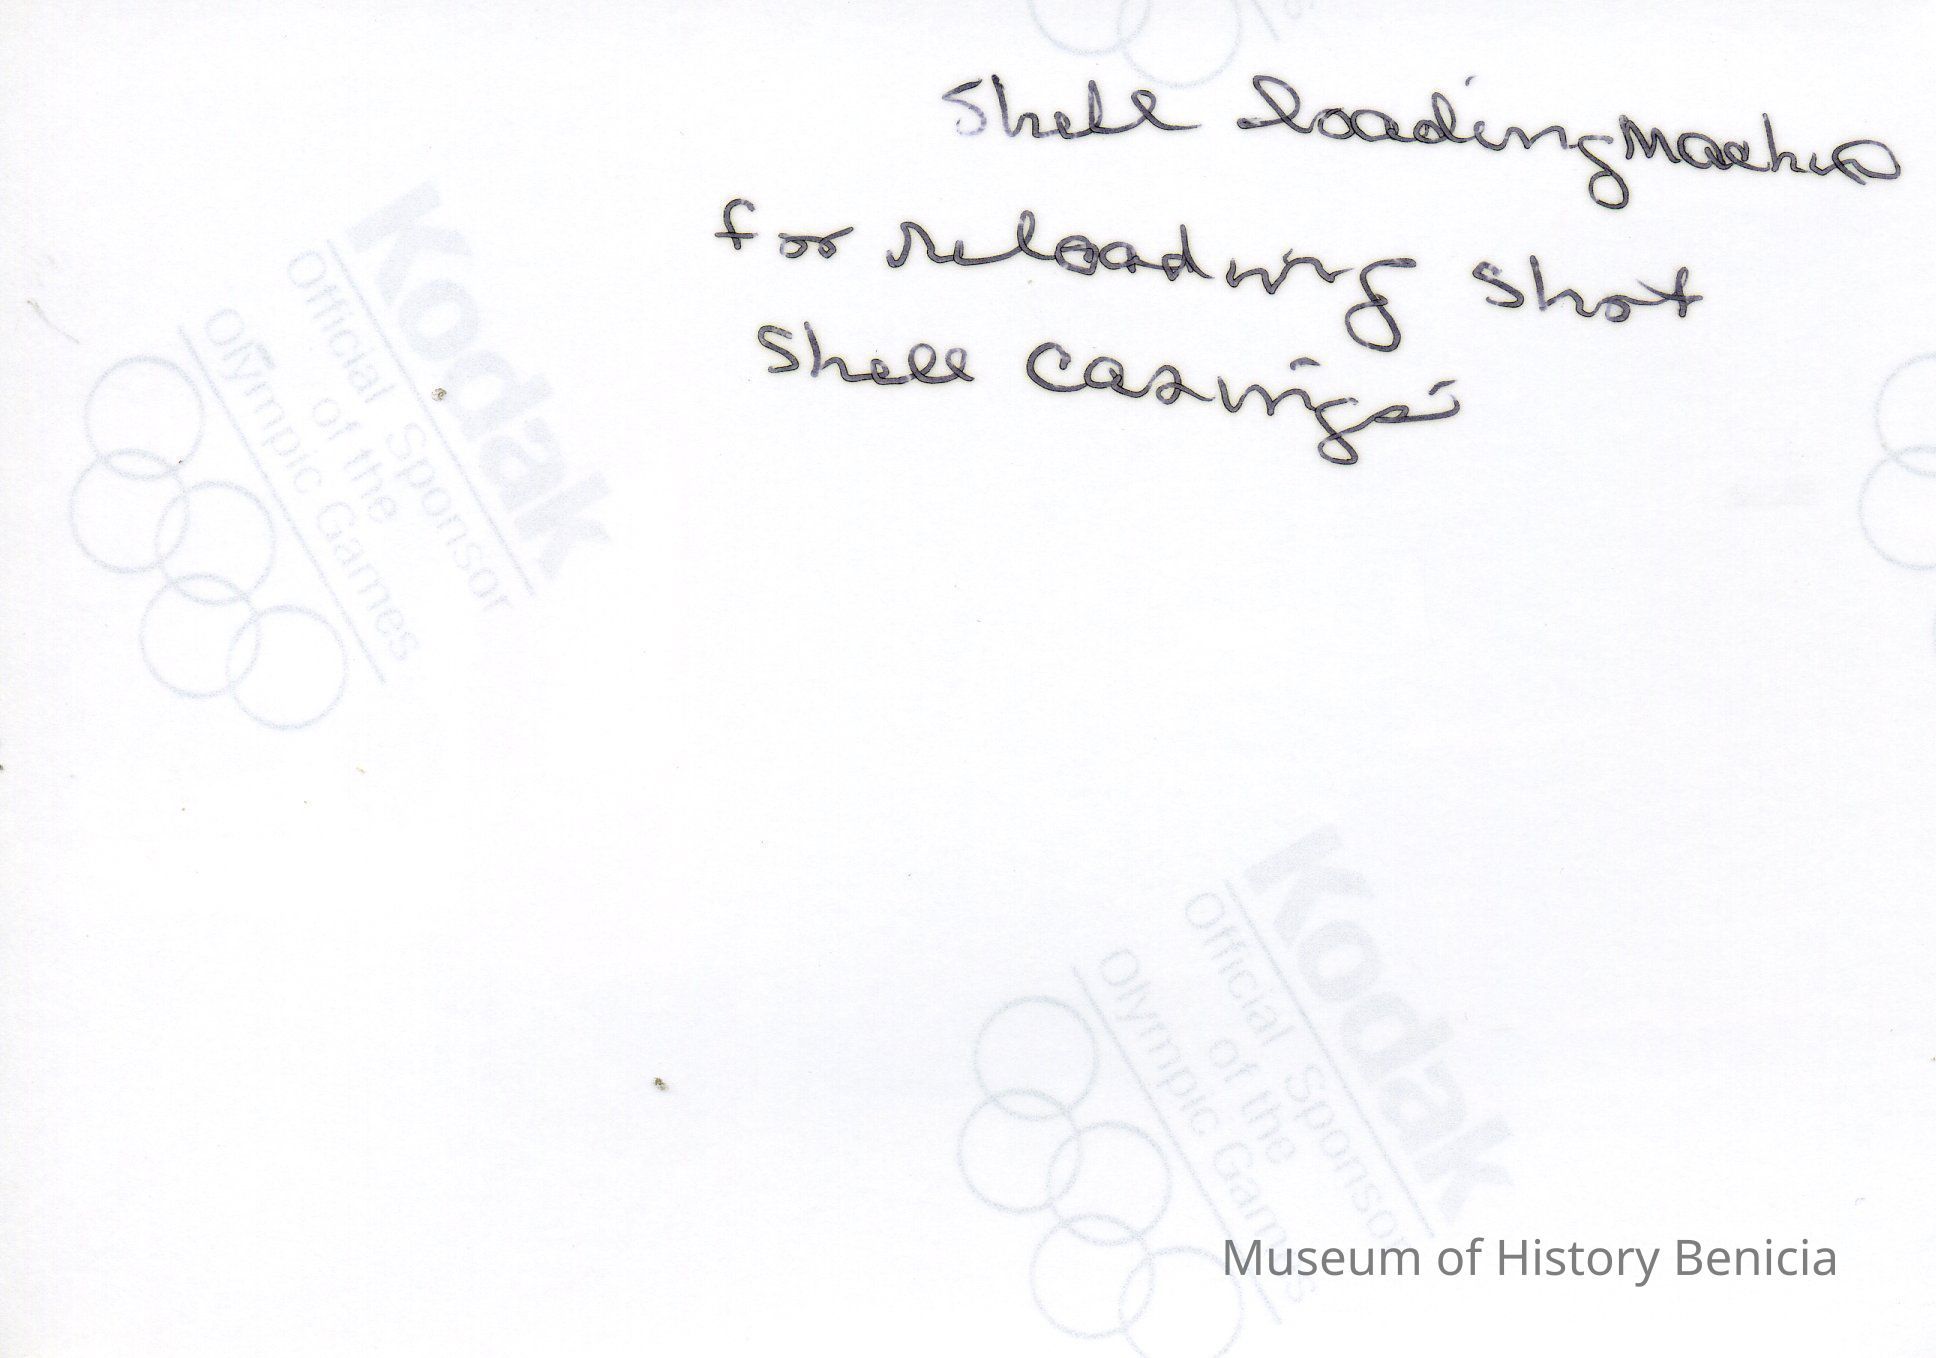 Shell loading Machine
for reloading shot
shell casings
Kodak
Official Sponsor
of the
Olympic Games
Kodak
Official Sponsor
of the
Olympic Games
Museum of History Benicia